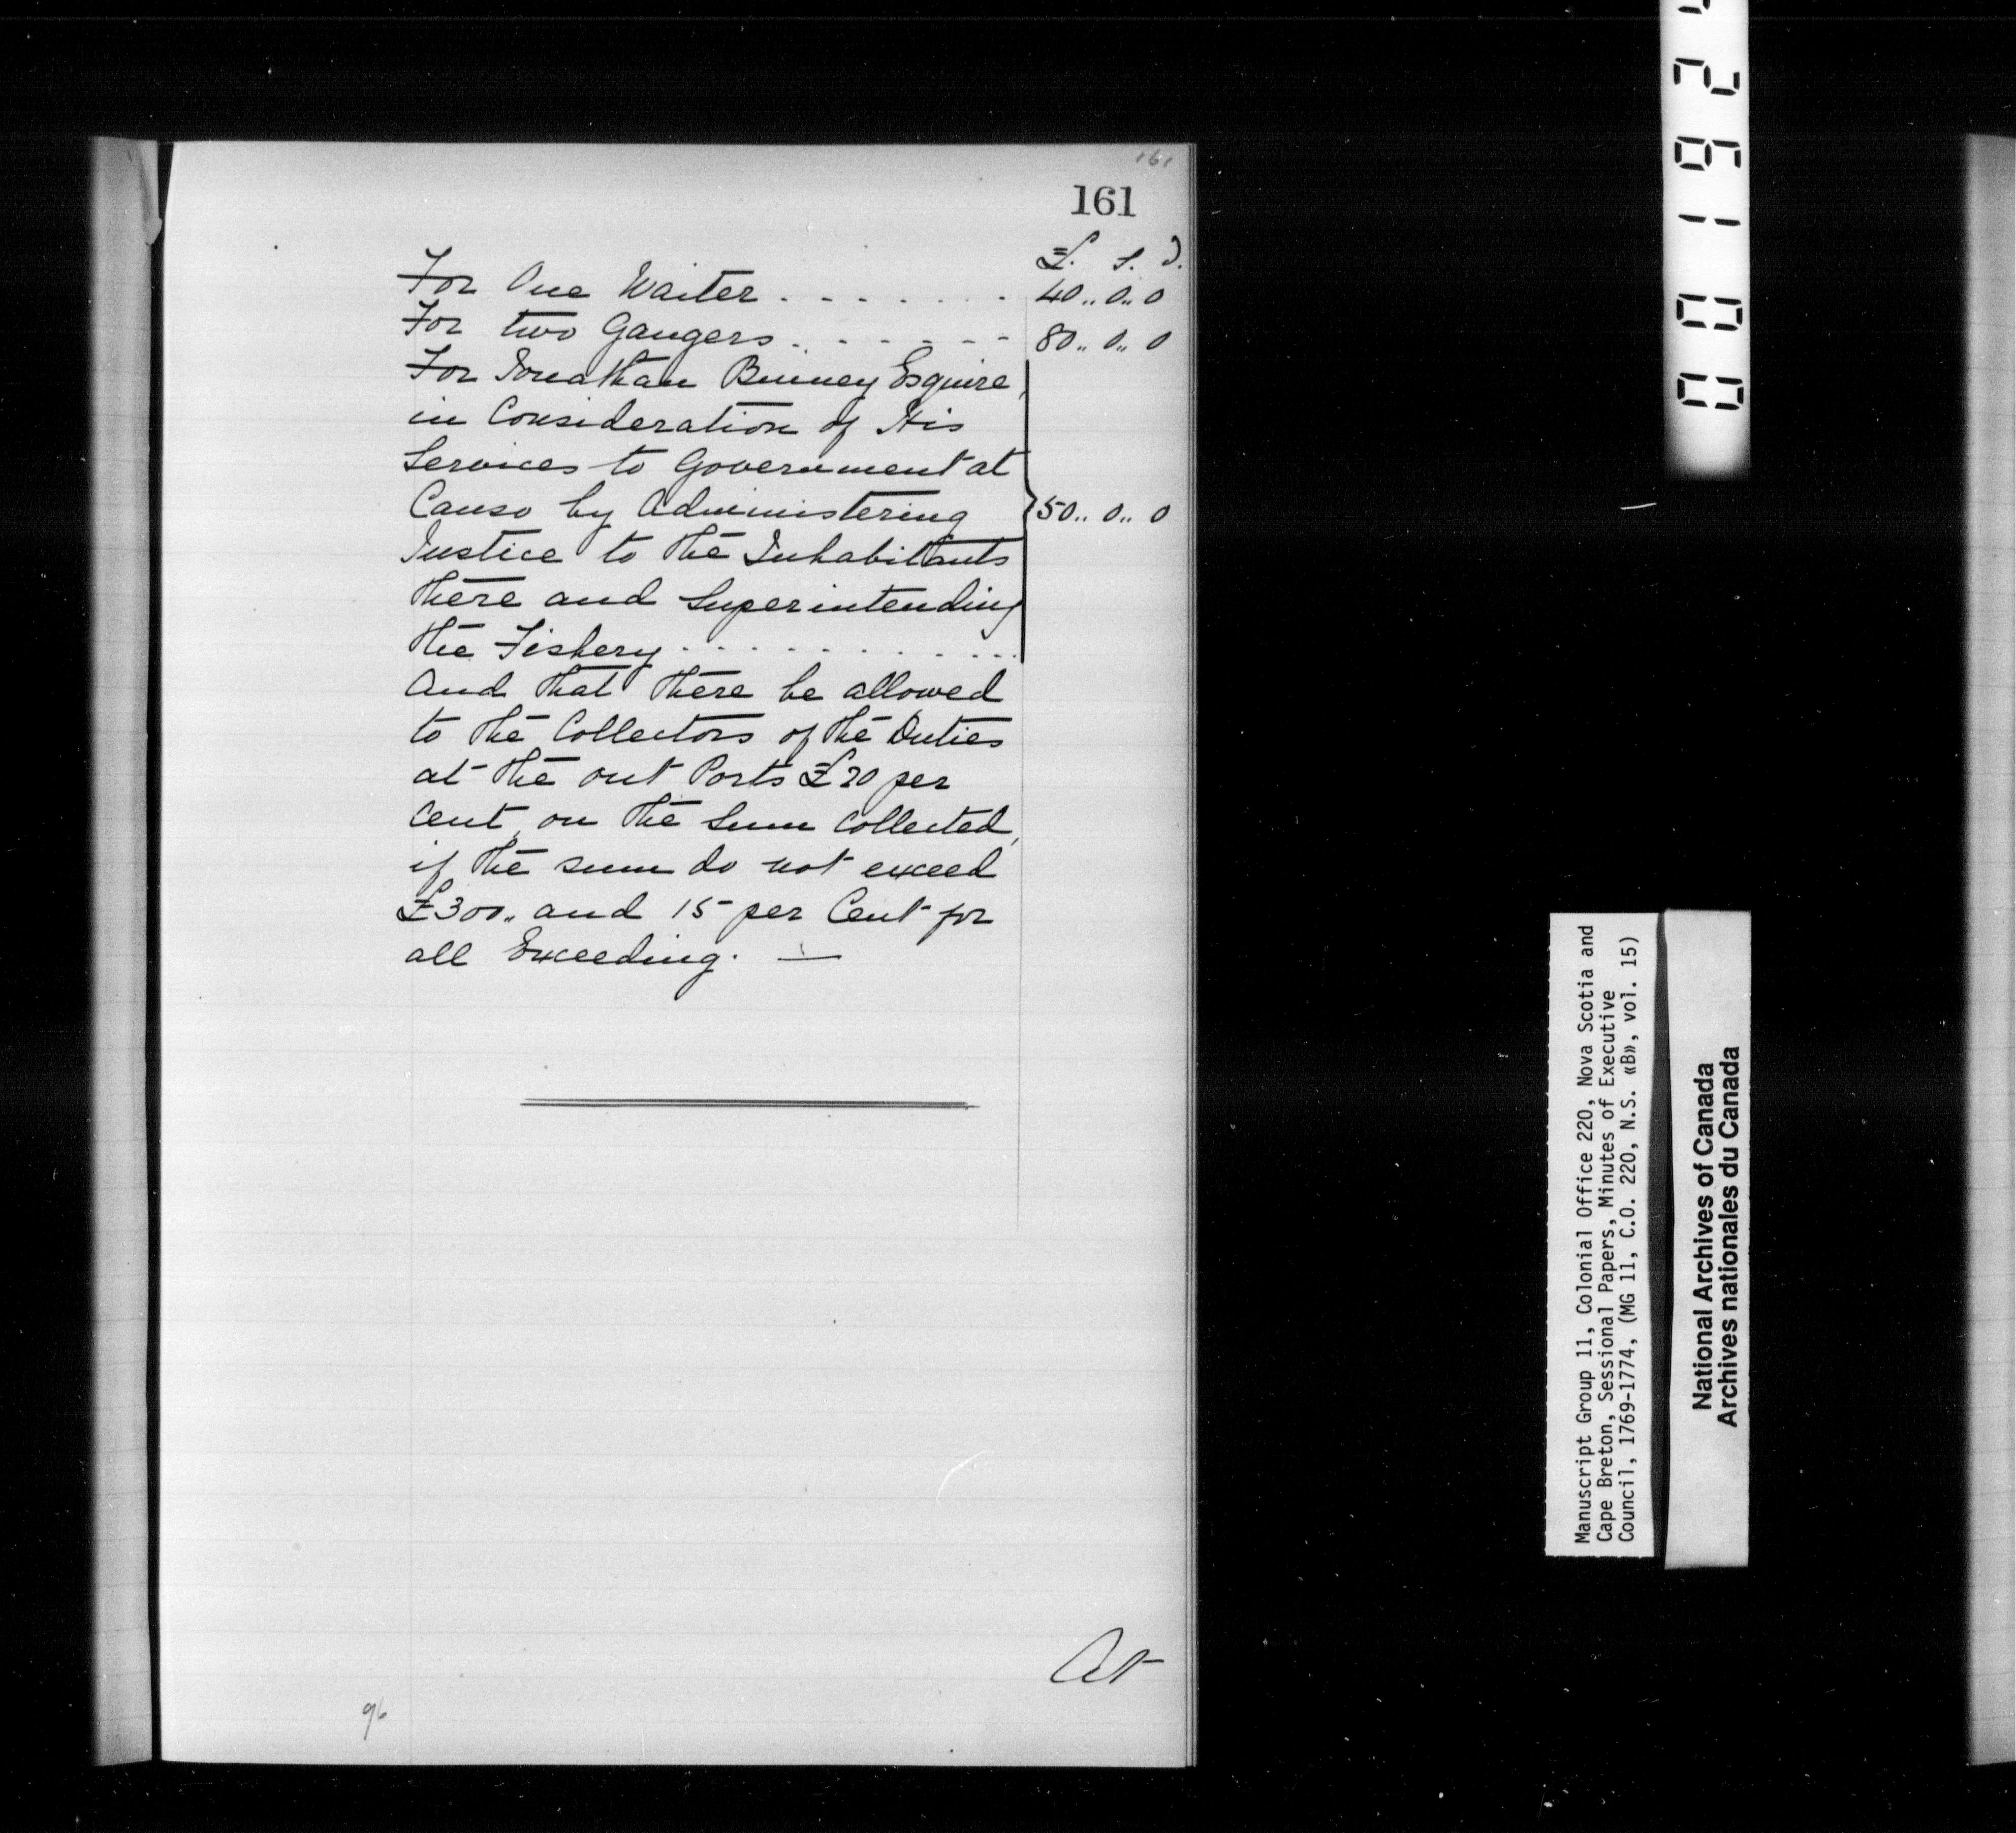 161
161
£. S. D.
For One Waiter . . . . . . . 40,, 0,, 0
For two Gaugers . . . . . . 80,, 0,, 0
For Jonathan Binney Esquire,
in Consideration of His
Services to Government at
Canso by Administering 50,, 0,, 0
Justice to the Inhabitants
there and Superintending
the Fishery . . . . . . . . . .
And that there be allowed
to the Collectors of the Duties
at the out Ports £20 per
Cent, on the Sum Collected,
if the sum do not exceed
£300,, and 15 per Cent for
all Exceeding. —
At
96
Manuscript Group 11, Colonial Office 220, Nova Scotia and
Cape Breton, Sessional Papers, Minutes of Executive
Council, 1769-1774, (MG 11, C.O. 220, N.S. «B», vol. 15)
National Archives of Canada
Archives nationales du Canada